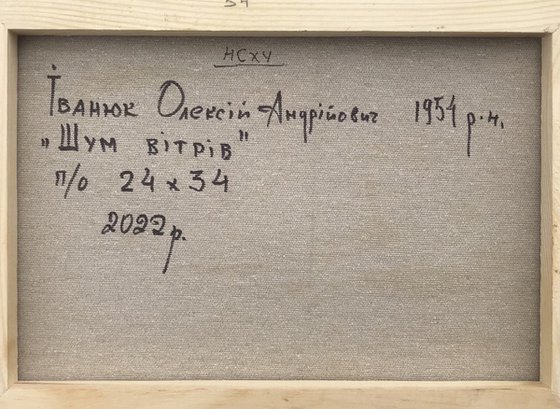 34
НСХУ
Іванюк Олексій Андрійович 1954 р.н.
„Шум вітрів"
п/о 24 х 34
2022р.